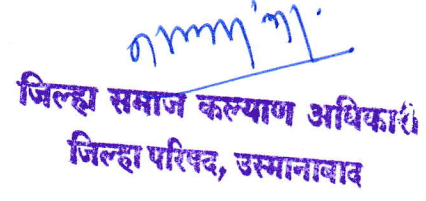 जिल्हा समाज कल्याण अधिकारी
जिल्हा परिषद, उस्मानाबाद